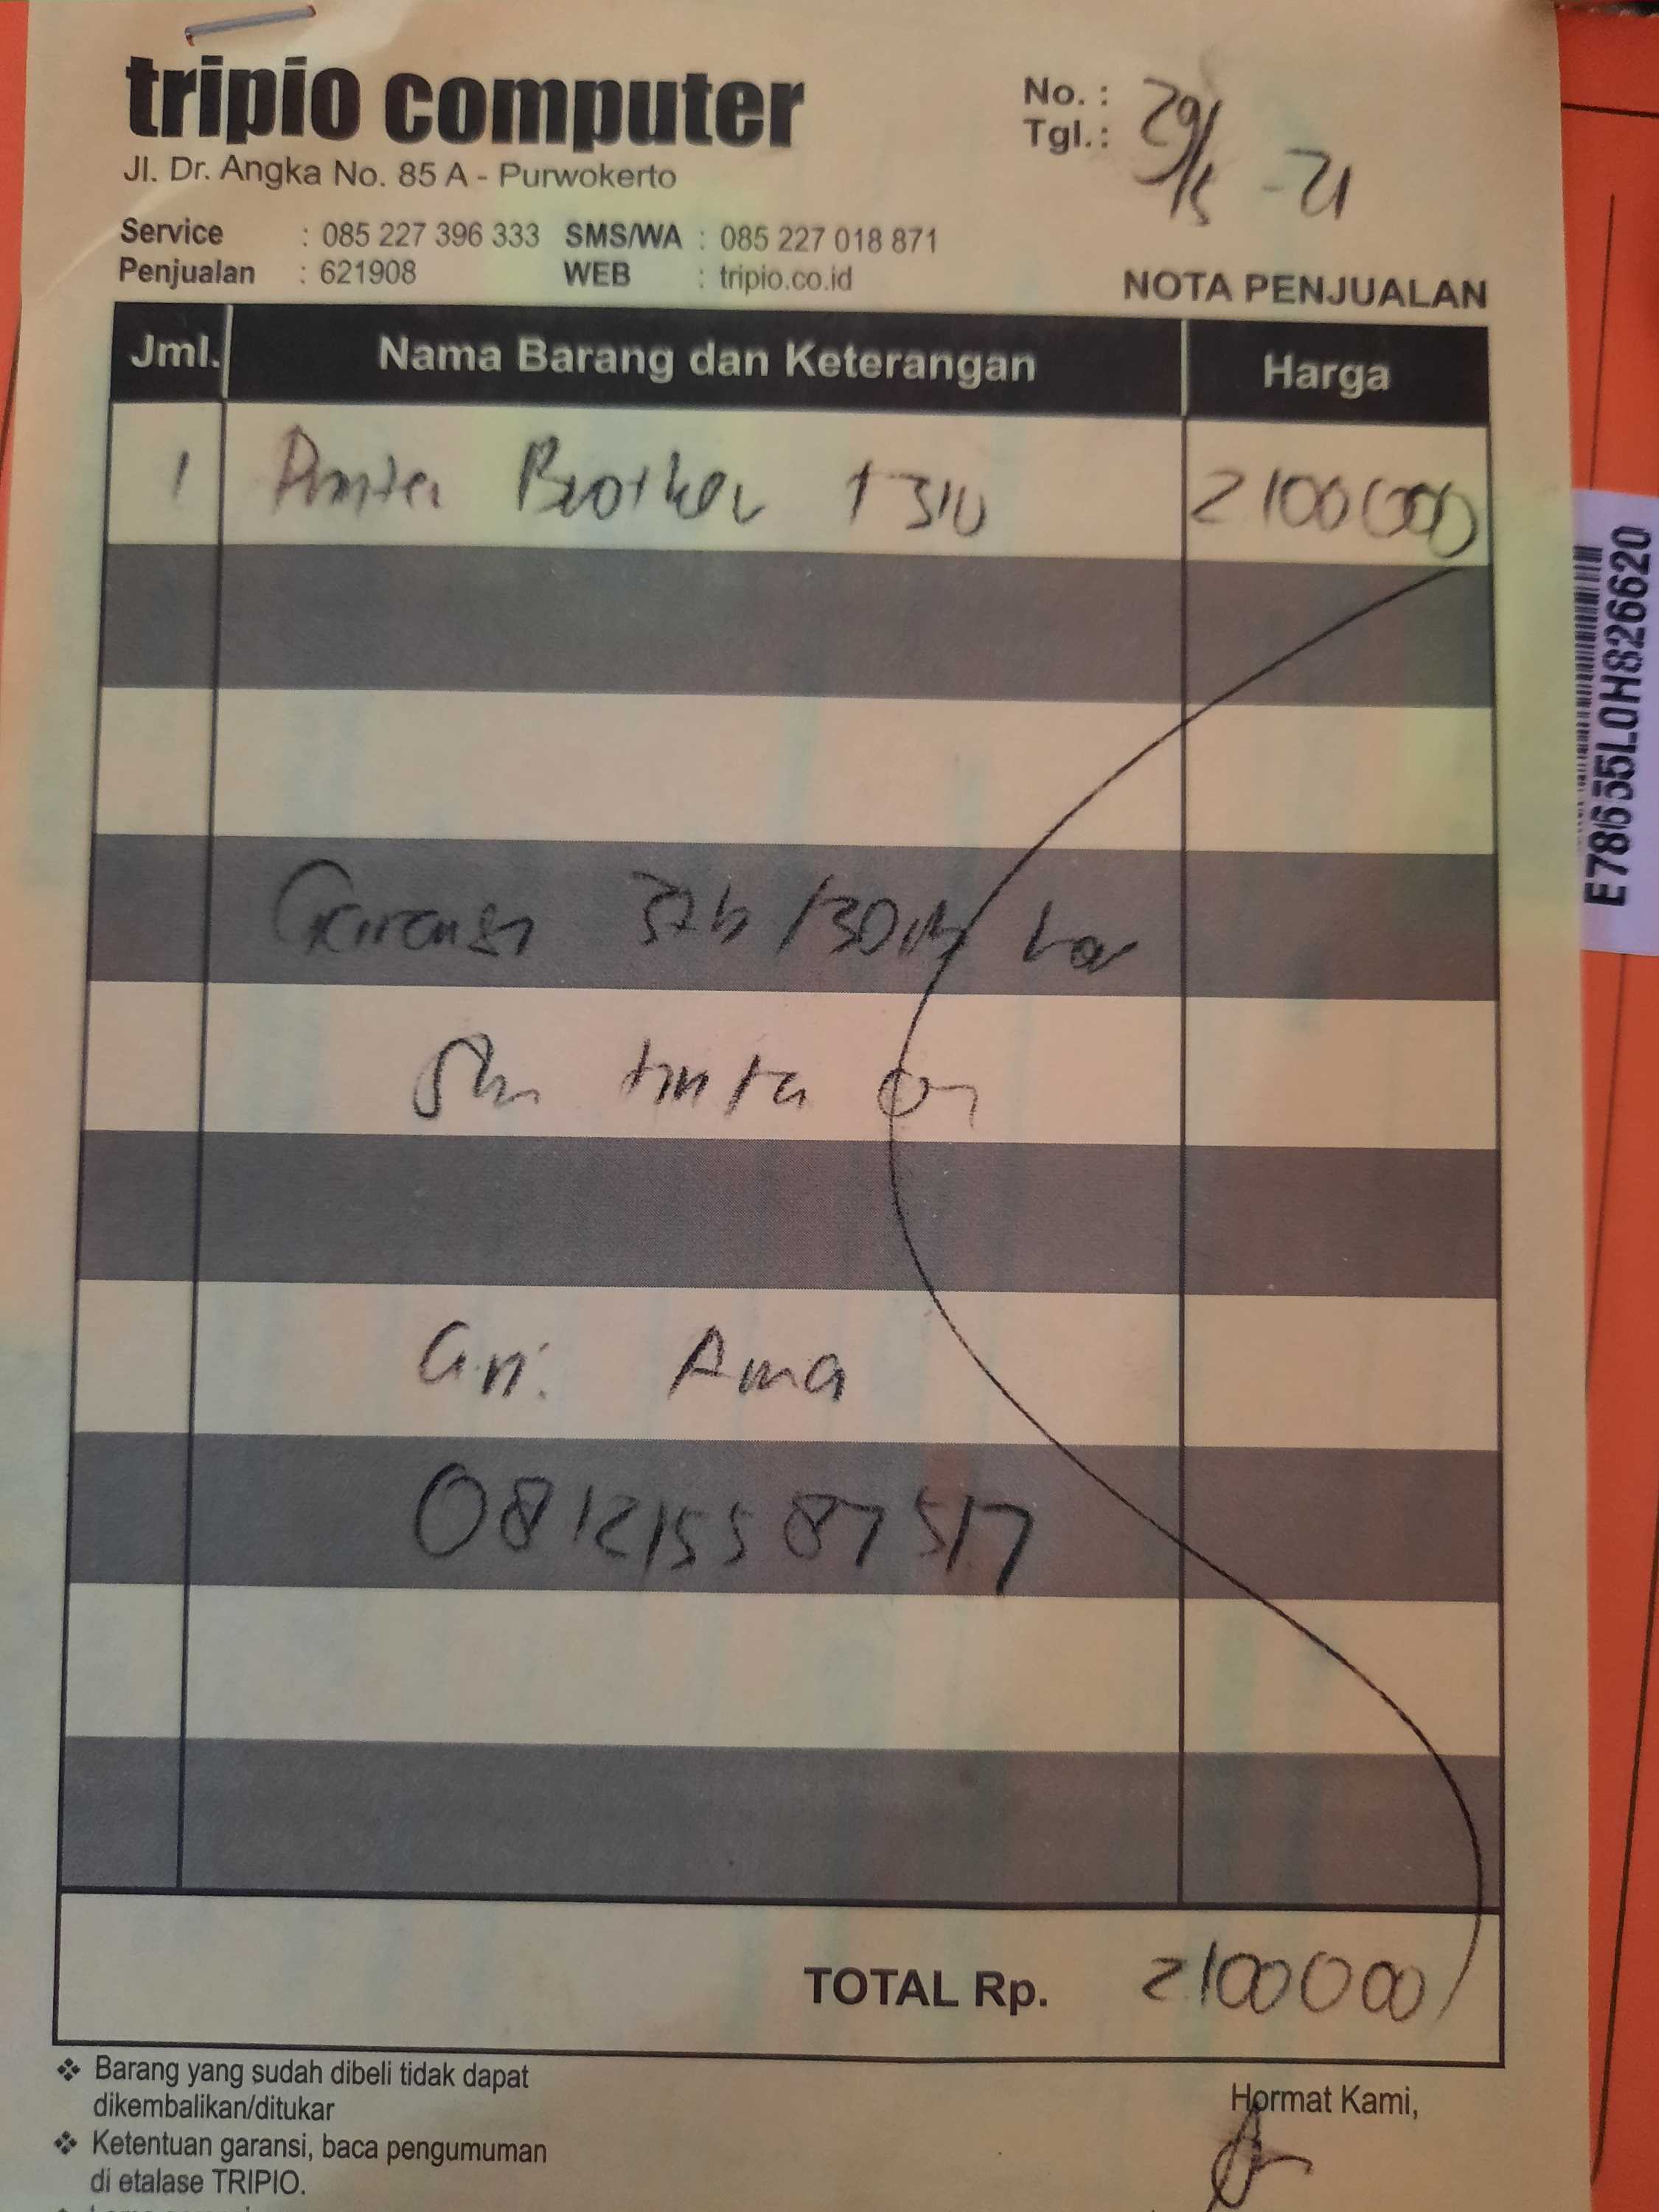 tripio computer
Jl. Dr. Angka No. 85 A - Purwokerto
No. :
Tgl. : 29/5 - 21
Service : 085 227 396 333 SMS/WA : 085 227 018 871
Penjualan : 621908 WEB : tripio.co.id
NOTA PENJUALAN
Jml. Nama Barang dan Keterangan Harga
1 Printer Brother T310 2100000
Garansi 3th /30rb
tinta ori
an. Ama
081215587517
TOTAL Rp. 2100000
❖ Barang yang sudah dibeli tidak dapat
dikembalikan/ditukar
❖ Ketentuan garansi, baca pengumuman
di etalase TRIPIO.
Hormat Kami,
E78655L0H826620